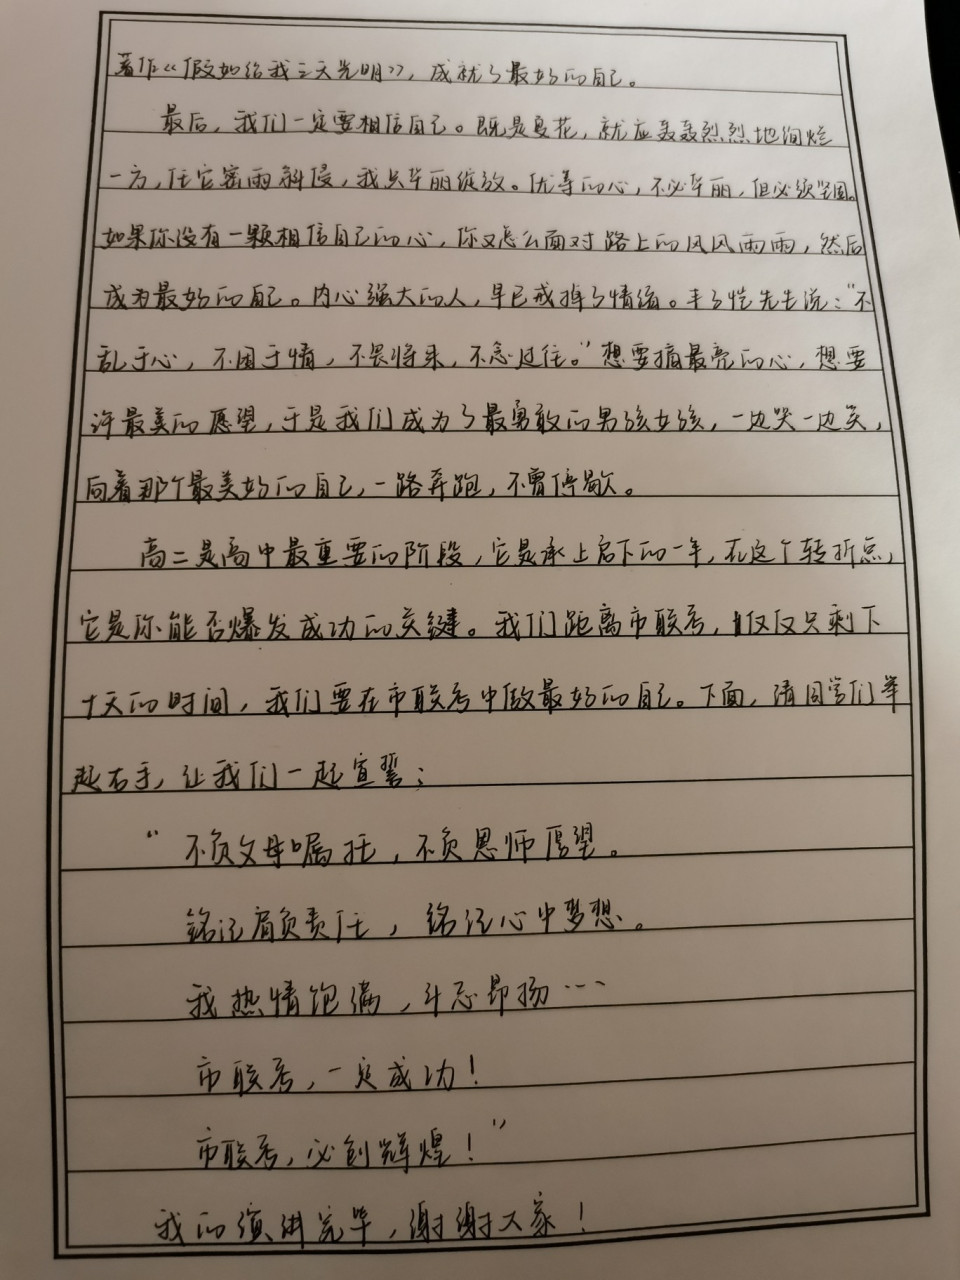 著作《假如给我三天光明》，成就了最好的自己。
最后，我们一定要相信自己。既是夏花，就应轰轰烈烈地绚烂
一方，任它密雨斜侵，我只华丽绽放。优等的心，不必华丽，但必须坚固。
如果你没有一颗相信自己的心，你又怎么面对路上的风风雨雨，然后
成为最好的自己。内心强大的人，早已戒掉了情绪。丰子恺先生说：“不
乱于心，不困于情，不畏将来，不念过往。”想要摘最亮的心，想要
许最美的愿望，于是我们成为了最勇敢的男孩女孩，一边哭一边笑，
向着那个最美好的自己，一路奔跑，不曾停歇。
高二是高中最重要的阶段，它是承上启下的一年，在这个转折点，
它是你能否爆发成功的关键。我们距离市联考，仅仅只剩下
十天的时间，我们要在市联考中做最好的自己。下面，请同学们举
起右手，让我们一起宣誓：
“不负父母嘱托，不负恩师厚望。
铭记肩负责任，铭记心中梦想。
我热情饱满，斗志昂扬…
市联考，一定成功！
市联考，必创辉煌！”
我的演讲完毕，谢谢大家！